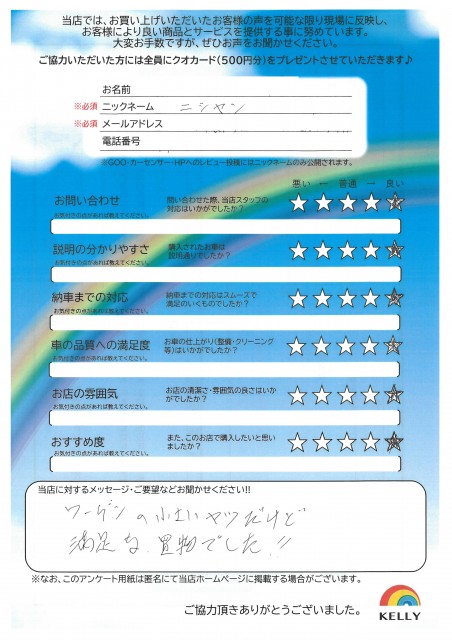 当店では、お買い上げいただいたお客様の声を可能な限り現場に反映し、
お客様により良い商品とサービスを提供する事に努めています。
大変お手数ですが、ぜひお声をお聞かせください。
ご協力いただいた方には全員にクオカード(500円分)をプレゼントさせていただきます♪
お名前
※必須 ニックネーム ニシヤン
※必須 メールアドレス
電話番号
※GOO・カーセンサー・HPへのレビュー投稿にはニックネームのみ公開されます。
悪い ← 普通 → 良い
お問い合わせ 問い合わせた際、当店スタッフの
お気付きの点があれば教えてください。 対応はいかがでしたか?
説明の分かりやすさ 購入されたお車は
お気付きの点があれば教えてください。 説明通りでしたか?
納車までの対応 納車までの対応はスムーズで
お気付きの点があれば教えてください。 満足のいくものでしたか?
車の品質への満足度 お車の仕上がり(整備・クリーニング
お気付きの点があれば教えてください。 等)はいかがでしたか?
お店の雰囲気 お店の清潔さ・雰囲気の良さはいか
お気付きの点があれば教えてください。 がでしたか?
おすすめ度 また、このお店で購入したいと思い
お気付きの点があれば教えてください。 ましたか?
当店に対するメッセージ・ご要望などお聞かせください!!
ワーゲンの小さいヤツだけど
満足な買物でした!!
※なお、このアンケート用紙は匿名にて当店ホームページに掲載する場合がございます。
ご協力頂きありがとうございました。
KELLY